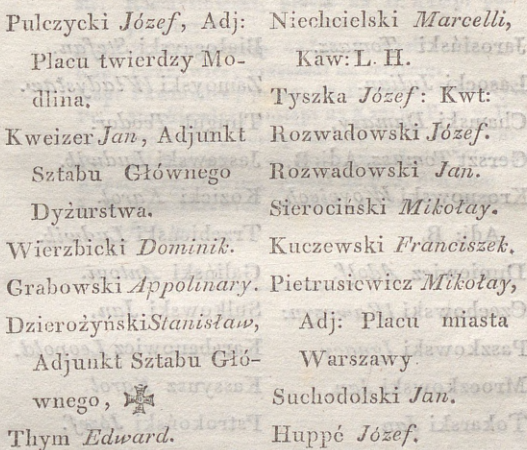 Pulczycki Józef, Adj:
Placu twierdzy Mo-
dlina.
Kweizer Jan, Adjunkt
Sztabu Głównego
Dyżurstwa.
Wierzbicki Dominik.
Grabowski Appolinary.
Dzierożyński Stanisław,
Adjunkt Sztabu Głó-
wnego,
Thym Edward.
Niechcielski Marcelli,
Kaw: L. H.
Tyszka Józef: Kwt:
Rozwadowski Józef.
Rozwadowski Jan.
Sierociński Mikołay.
Kuczewski Franciszek.
Pietrusiewicz Mikołay,
Adj: Placu miasta
Warszawy.
Suchodolski Jan.
Huppé Józef.